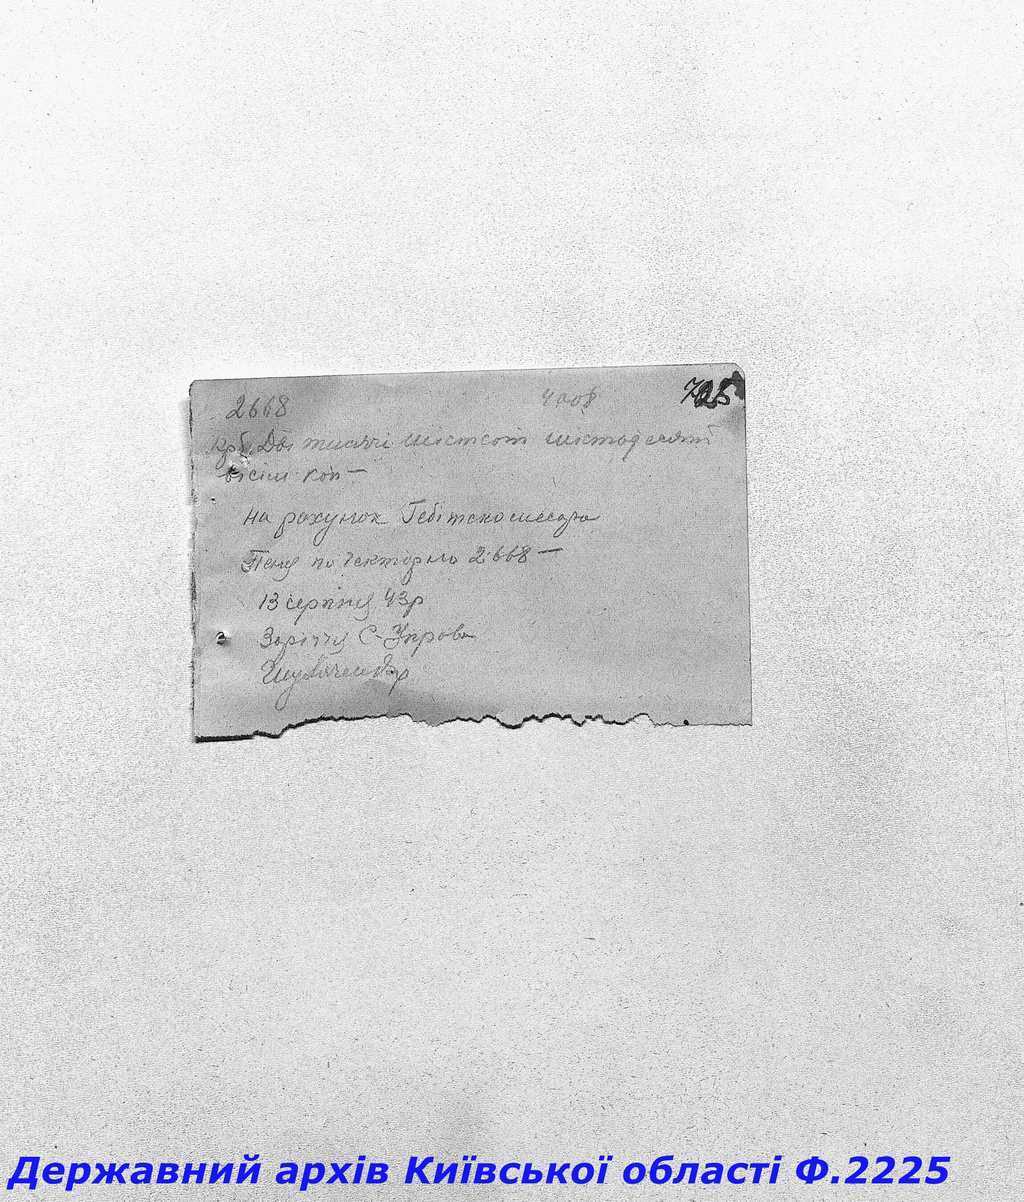 2668
725
Крб. Дві тисячі шістсот шістдесят
вісім коп —
на рахунок Гебітскомісара
Пеня по 2668 —
13 серпня 43р
Заріччя С-Управа
Державний архів Київської області Ф.2225